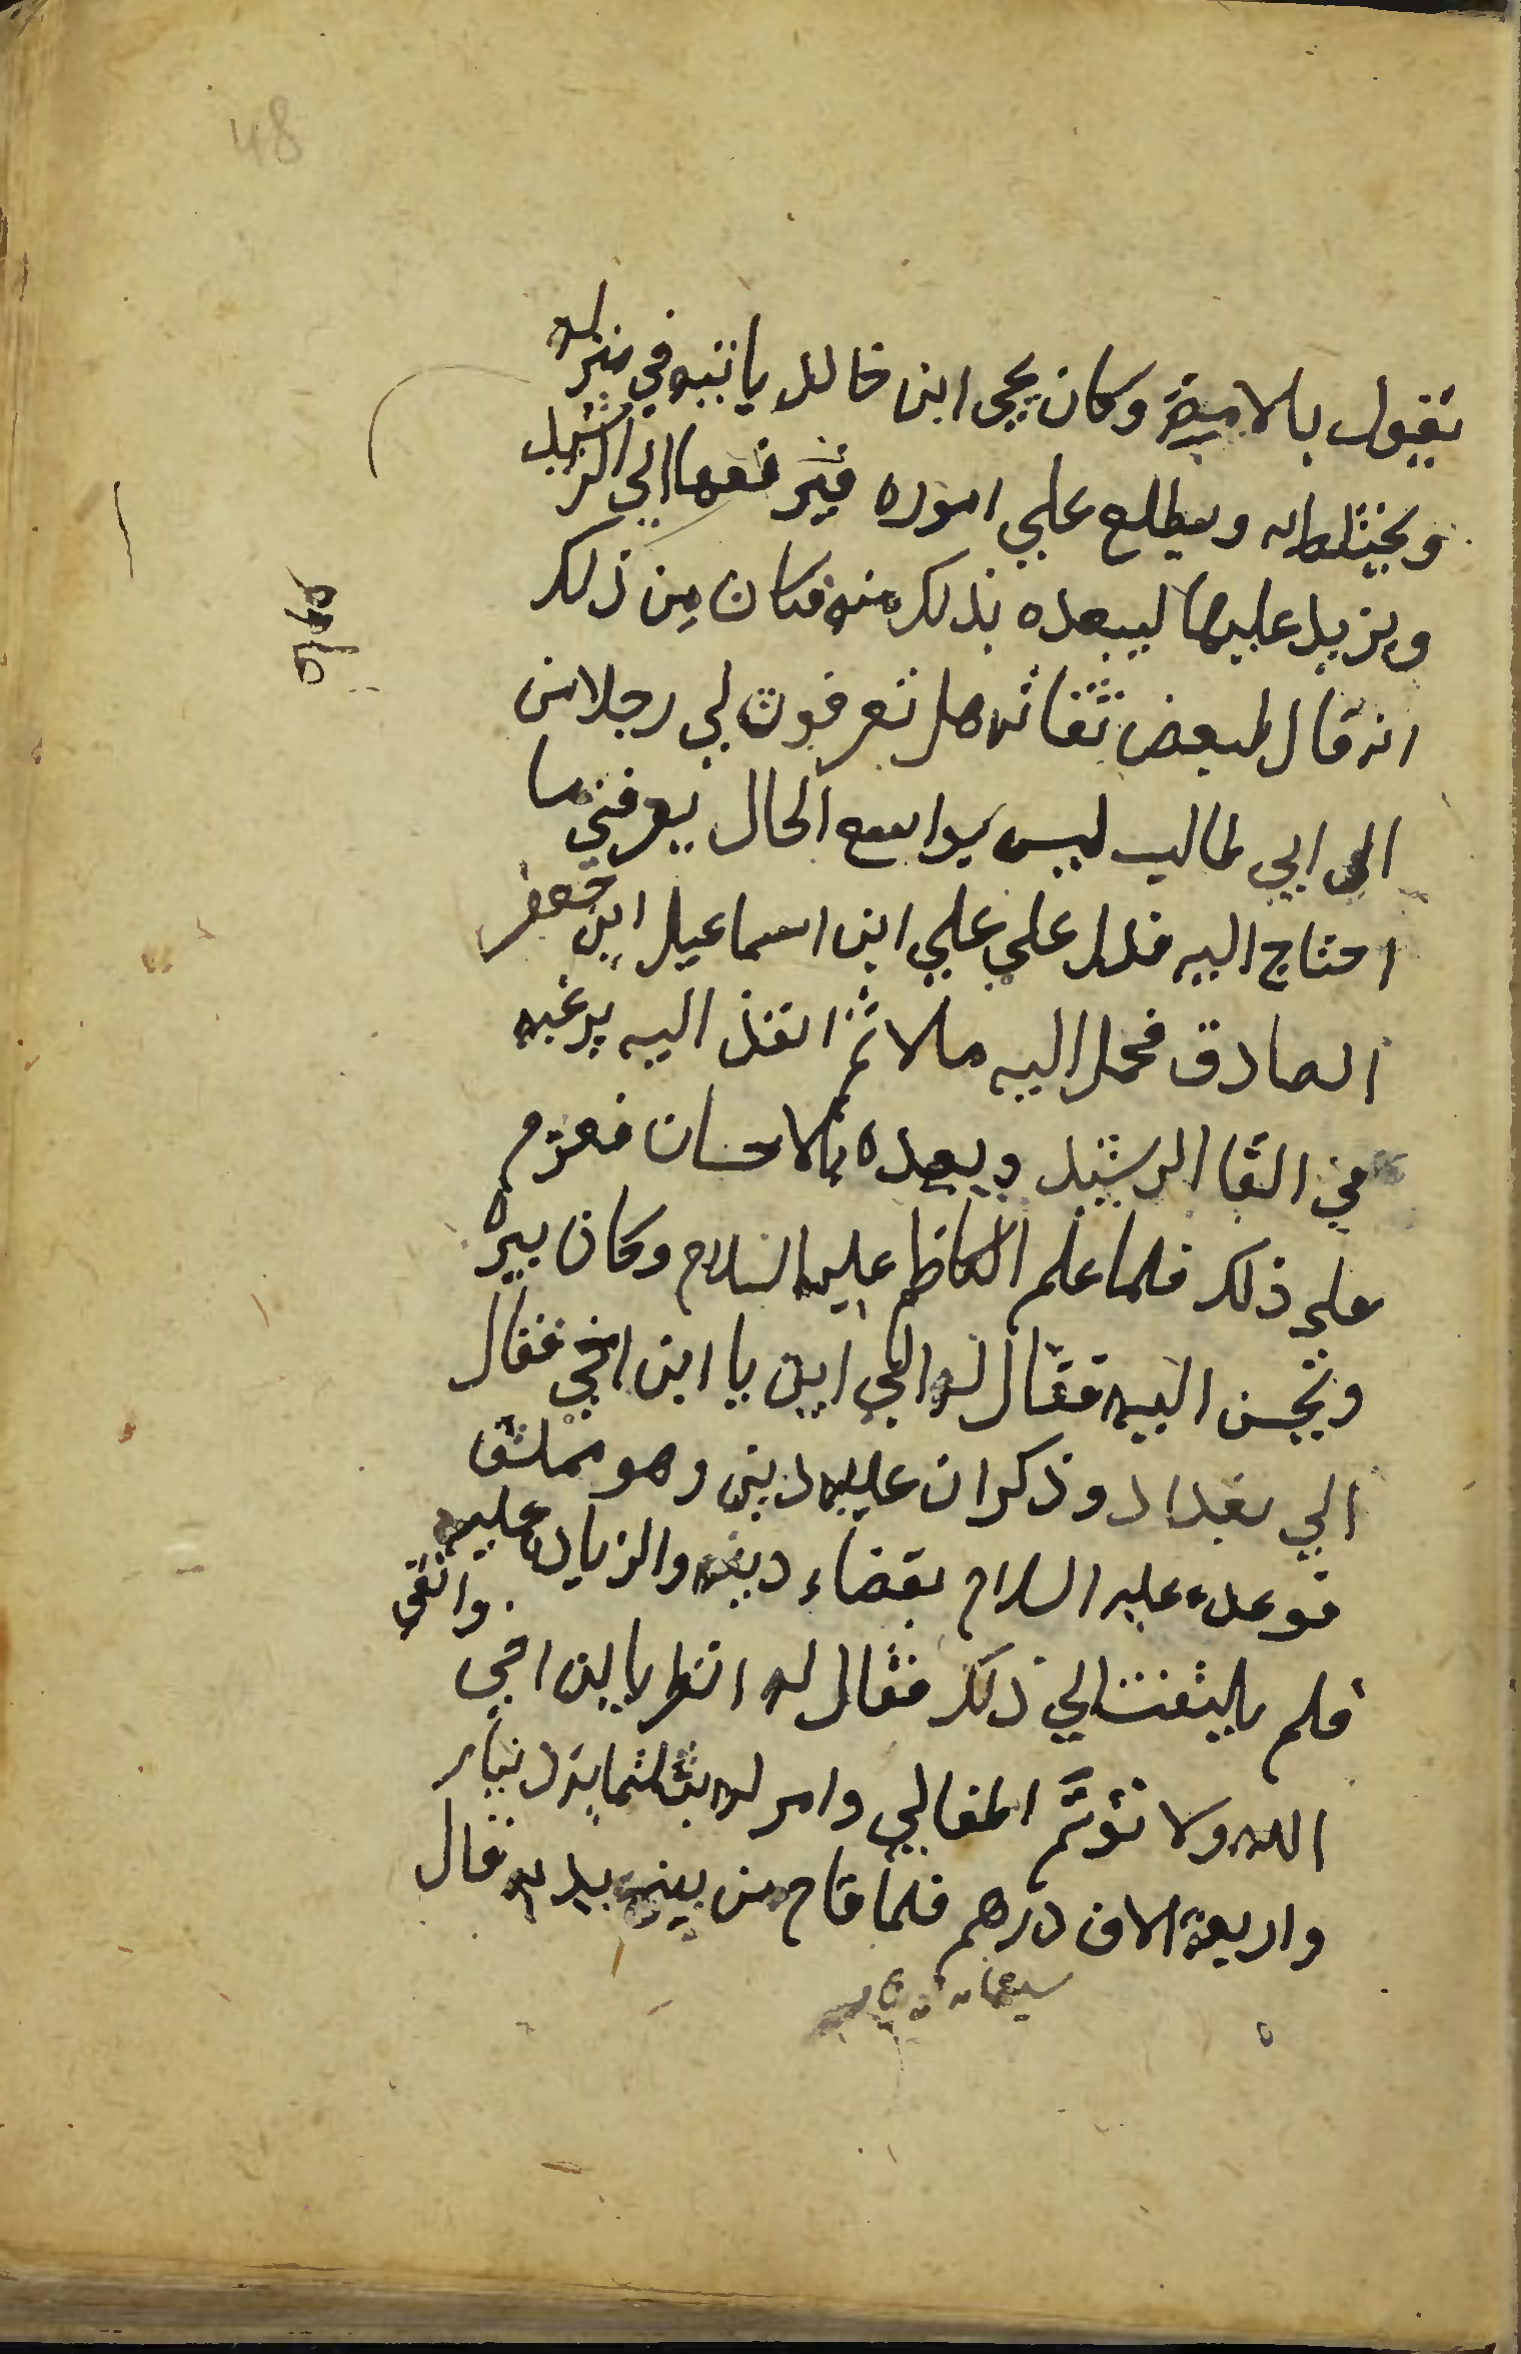 48
يقول بالامامة وكان يحيى ابن خالد ياتيه في منزله
ويختلط به ويطلع علي اموره فيرفعها الي الرشيد
ويزيد عليها ليبعده بذلك منه فكان من ذلك
انه قال لبعض ثقاته هل تعرفون لي رجلا من
ال ابي طالب ليس بواسع الحال يعرفني ما
احتاج اليه فدل علي علي ابن اسماعيل ابن جعفر
الصادق فحمل اليه مالا ثم انفذ اليه يرغبه
في القا الرشيد ويعده بالاحسان فعزم
علي ذلك فلما علم الكاظم عليه السلام وكان يبره
ويحسن اليه فقال له الي اين يا ابن اخي فقال
الي بغداد وذكر ان عليه دين وهو مملق
فوعده عليه السلام بقضاء دينه والزياده عليه
فلم يلتفت الي ذلك فقال له انظر يابن اخي واتقي
الله ولا تؤتم اطفالي وامر له بثلثماية دينار
واربعة الاف درهم فلما قام من بين يديه قال